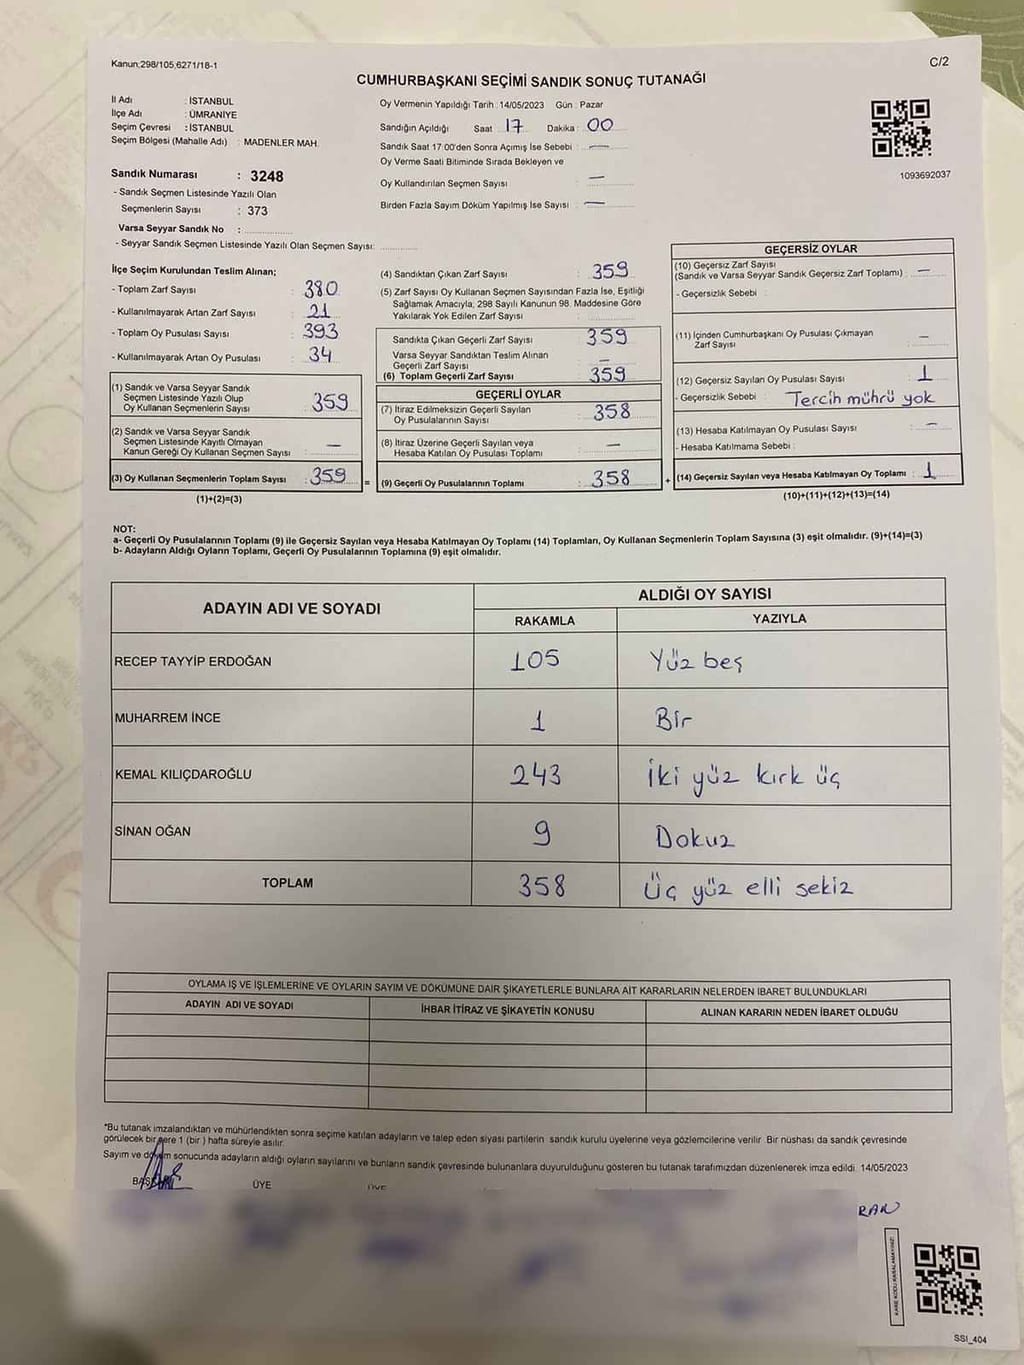 Kanun;298/105,6271/18-1
C/2
CUMHURBAŞKANI SEÇİMİ SANDIK SONUÇ TUTANAĞI
İl Adı : İSTANBUL
İlçe Adı : ÜMRANİYE
Seçim Çevresi : İSTANBUL
Seçim Bölgesi (Mahalle Adı) : MADENLER MAH.
Sandık Numarası : 3248
- Sandık Seçmen Listesinde Yazılı Olan
Seçmenlerin Sayısı : 373
Varsa Seyyar Sandık No :
- Seyyar Sandık Seçmen Listesinde Yazılı Olan Seçmen Sayısı:
Oy Vermenin Yapıldığı Tarih : 14/05/2023 Gün : Pazar
Sandığın Açıldığı Saat 17 Dakika : 00
Sandık Saat 17:00'den Sonra Açımış İse Sebebi : —
Oy Verme Saati Bitiminde Sırada Bekleyen ve
Oy Kullandırılan Seçmen Sayısı : —
Birden Fazla Sayım Döküm Yapılmış İse Sayısı : —
1093692037
İlçe Seçim Kurulundan Teslim Alınan;
- Toplam Zarf Sayısı : 380
- Kullanılmayarak Artan Zarf Sayısı : 21
- Toplam Oy Pusulası Sayısı : 393
- Kullanılmayarak Artan Oy Pusulası : 34
(1) Sandık ve Varsa Seyyar Sandık
Seçmen Listesinde Yazılı Olup
Oy Kullanan Seçmenlerin Sayısı : 359
(2) Sandık ve Varsa Seyyar Sandık
Seçmen Listesinde Kayıtlı Olmayan
Kanun Gereği Oy Kullanan Seçmen Sayısı : —
(3) Oy Kullanan Seçmenlerin Toplam Sayısı : 359 =
(1)+(2)=(3)
(4) Sandıktan Çıkan Zarf Sayısı : 359
(5) Zarf Sayısı Oy Kullanan Seçmen Sayısından Fazla İse, Eşitliği
Sağlamak Amacıyla; 298 Sayılı Kanunun 98. Maddesine Göre
Yakılarak Yok Edilen Zarf Sayısı :
Sandıkta Çıkan Geçerli Zarf Sayısı : 359
Varsa Seyyar Sandıktan Teslim Alınan
Geçerli Zarf Sayısı : —
(6) Toplam Geçerli Zarf Sayısı : 359
GEÇERLİ OYLAR
(7) İtiraz Edilmeksizin Geçerli Sayılan
Oy Pusulalarının Sayısı : 358
(8) İtiraz Üzerine Geçerli Sayılan veya
Hesaba Katılan Oy Pusulası Toplamı : —
(9) Geçerli Oy Pusulalarının Toplamı : 358 +
GEÇERSİZ OYLAR
(10) Geçersiz Zarf Sayısı
(Sandık ve Varsa Seyyar Sandık Geçersiz Zarf Toplamı) : —
- Geçersizlik Sebebi :
(11) İçinden Cumhurbaşkanı Oy Pusulası Çıkmayan
Zarf Sayısı : —
(12) Geçersiz Sayılan Oy Pusulası Sayısı : 1
- Geçersizlik Sebebi : Tercih mührü yok
(13) Hesaba Katılmayan Oy Pusulası Sayısı : —
- Hesaba Katılmama Sebebi :
(14) Geçersiz Sayılan veya Hesaba Katılmayan Oy Toplamı : 1
(10)+(11)+(12)+(13)=(14)
NOT:
a- Geçerli Oy Pusulalarının Toplamı (9) ile Geçersiz Sayılan veya Hesaba Katılmayan Oy Toplamı (14) Toplamları, Oy Kullanan Seçmenlerin Toplam Sayısına (3) eşit olmalıdır. (9)+(14)=(3)
b- Adayların Aldığı Oyların Toplamı, Geçerli Oy Pusulalarının Toplamına (9) eşit olmalıdır.
ADAYIN ADI VE SOYADI ALDIĞI OY SAYISI
RAKAMLA YAZIYLA
RECEP TAYYİP ERDOĞAN 105 Yüz beş
MUHARREM İNCE 1 Bir
KEMAL KILIÇDAROĞLU 243 İki yüz kırk üç
SİNAN OĞAN 9 Dokuz
TOPLAM 358 Üç yüz elli sekiz
OYLAMA İŞ VE İŞLEMLERİNE VE OYLARIN SAYIM VE DÖKÜMÜNE DAİR ŞİKAYETLERLE BUNLARA AİT KARARLARIN NELERDEN İBARET BULUNDUKLARI
ADAYIN ADI VE SOYADI İHBAR İTİRAZ VE ŞİKAYETİN KONUSU ALINAN KARARIN NEDEN İBARET OLDUĞU
*Bu tutanak imzalandıktan ve mühürlendikten sonra seçime katılan adayların ve talep eden siyasi partilerin sandık kurulu üyelerine veya gözlemcilerine verilir. Bir nüshası da sandık çevresinde
görülecek bir yere 1 (bir ) hafta süreyle asılır.
Sayım ve döküm sonucunda adayların aldığı oyların sayılarını ve bunların sandık çevresinde bulunanlara duyurulduğunu gösteren bu tutanak tarafımızdan düzenlenerek imza edildi. 14/05/2023
BAŞKAN ÜYE ÜYE
RAN
SSI_404